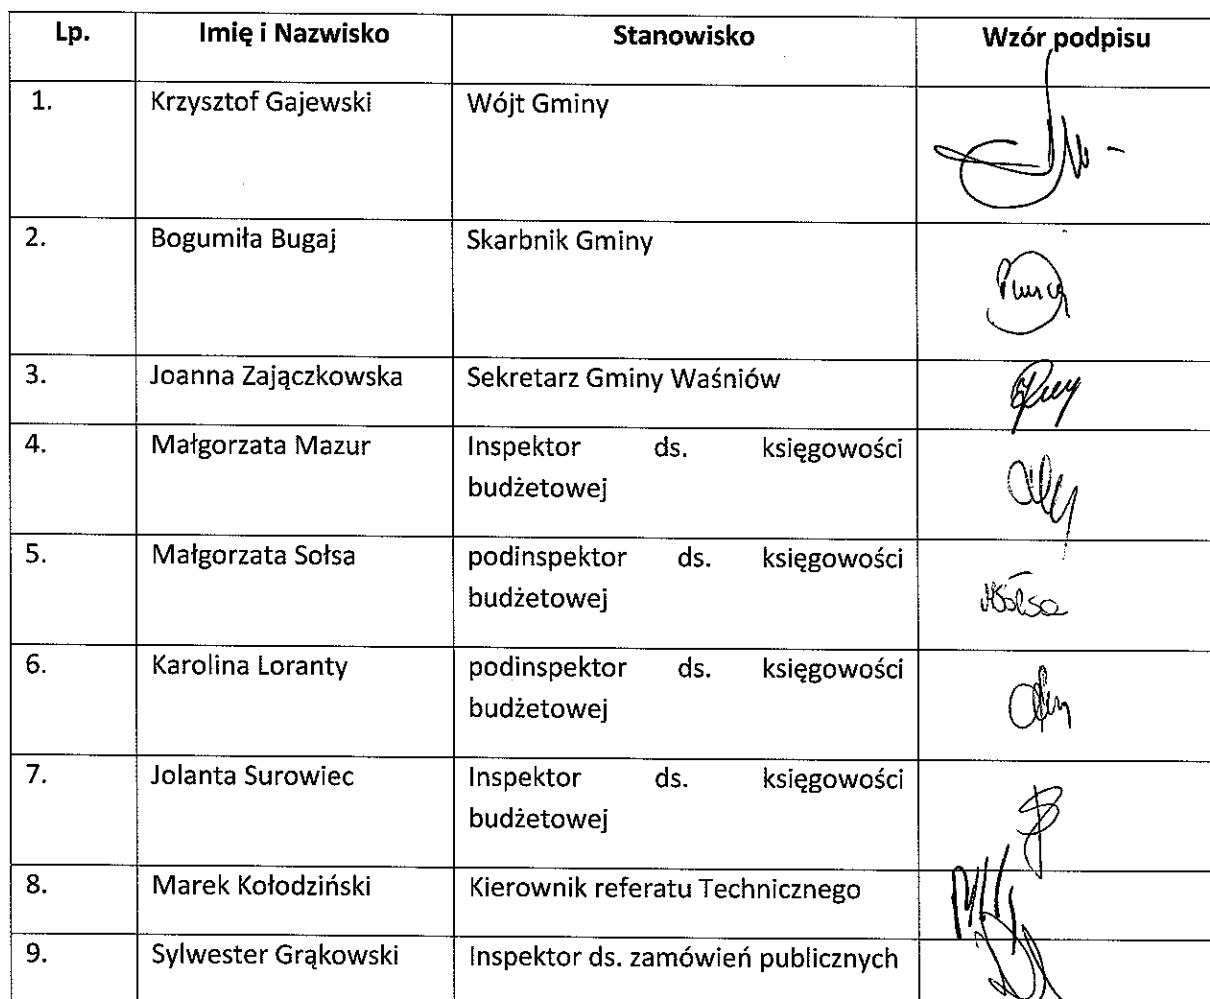 Lp. Imię i Nazwisko Stanowisko Wzór podpisu
1. Krzysztof Gajewski Wójt Gminy
2. Bogumiła Bugaj Skarbnik Gminy
3. Joanna Zajączkowska Sekretarz Gminy Waśniów
4. Małgorzata Mazur Inspektor ds. księgowości
budżetowej
5. Małgorzata Sołsa podinspektor ds. księgowości
budżetowej
6. Karolina Loranty podinspektor ds. księgowości
budżetowej
7. Jolanta Surowiec Inspektor ds. księgowości
budżetowej
8. Marek Kołodziński Kierownik referatu Technicznego
9. Sylwester Grąkowski Inspektor ds. zamówień publicznych